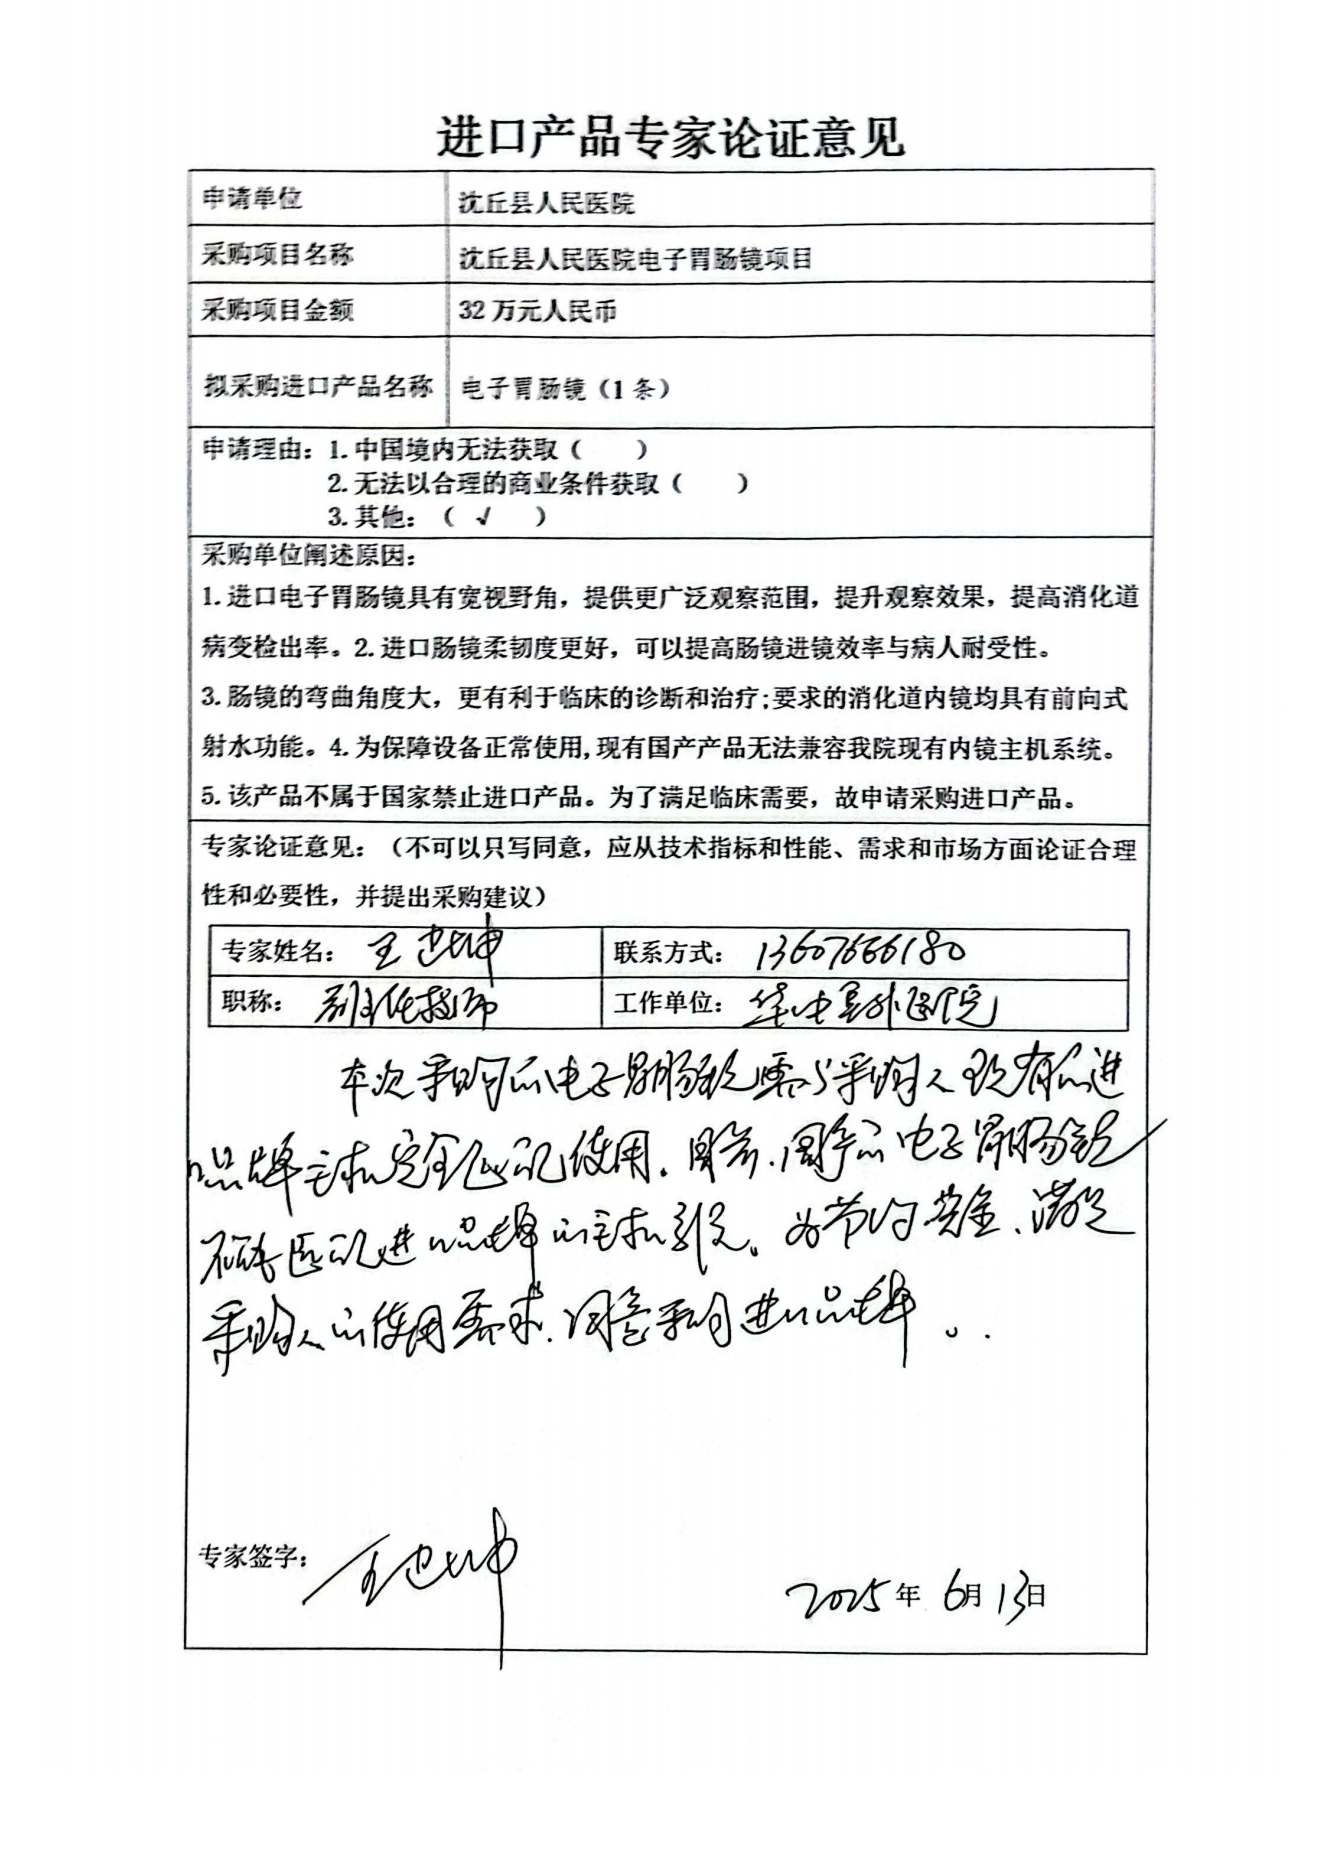 进口产品专家论证意见
申请单位 沈丘县人民医院
采购项目名称 沈丘县人民医院电子胃肠镜项目
采购项目金额 32万元人民币
拟采购进口产品名称 电子胃肠镜（1条）
申请理由：1.中国境内无法获取（ ）
2.无法以合理的商业条件获取（ ）
3.其他：（ √ ）
采购单位阐述原因：
1.进口电子胃肠镜具有宽视野角，提供更广泛观察范围，提升观察效果，提高消化道
病变检出率。2.进口肠镜柔韧度更好，可以提高肠镜进镜效率与病人耐受性。
3.肠镜的弯曲角度大，更有利于临床的诊断和治疗;要求的消化道内镜均具有前向式
射水功能。4.为保障设备正常使用,现有国产产品无法兼容我院现有内镜主机系统。
5.该产品不属于国家禁止进口产品。为了满足临床需要，故申请采购进口产品。
专家论证意见：（不可以只写同意，应从技术指标和性能、需求和市场方面论证合理
性和必要性，并提出采购建议）
专家姓名： 王 坤 联系方式： 13607666180
职称： 副主任技师 工作单位： 华中阜外医院
本次采购的电子胃肠镜需与采购人现有的进
口品牌主机完全匹配使用。目前，国产的电子胃肠镜
不能匹配进口品牌的主机系统。为节约资金、满足
采购人的使用需求，同意采购进口品牌。
专家签字： 王 坤
2025年 6月13日